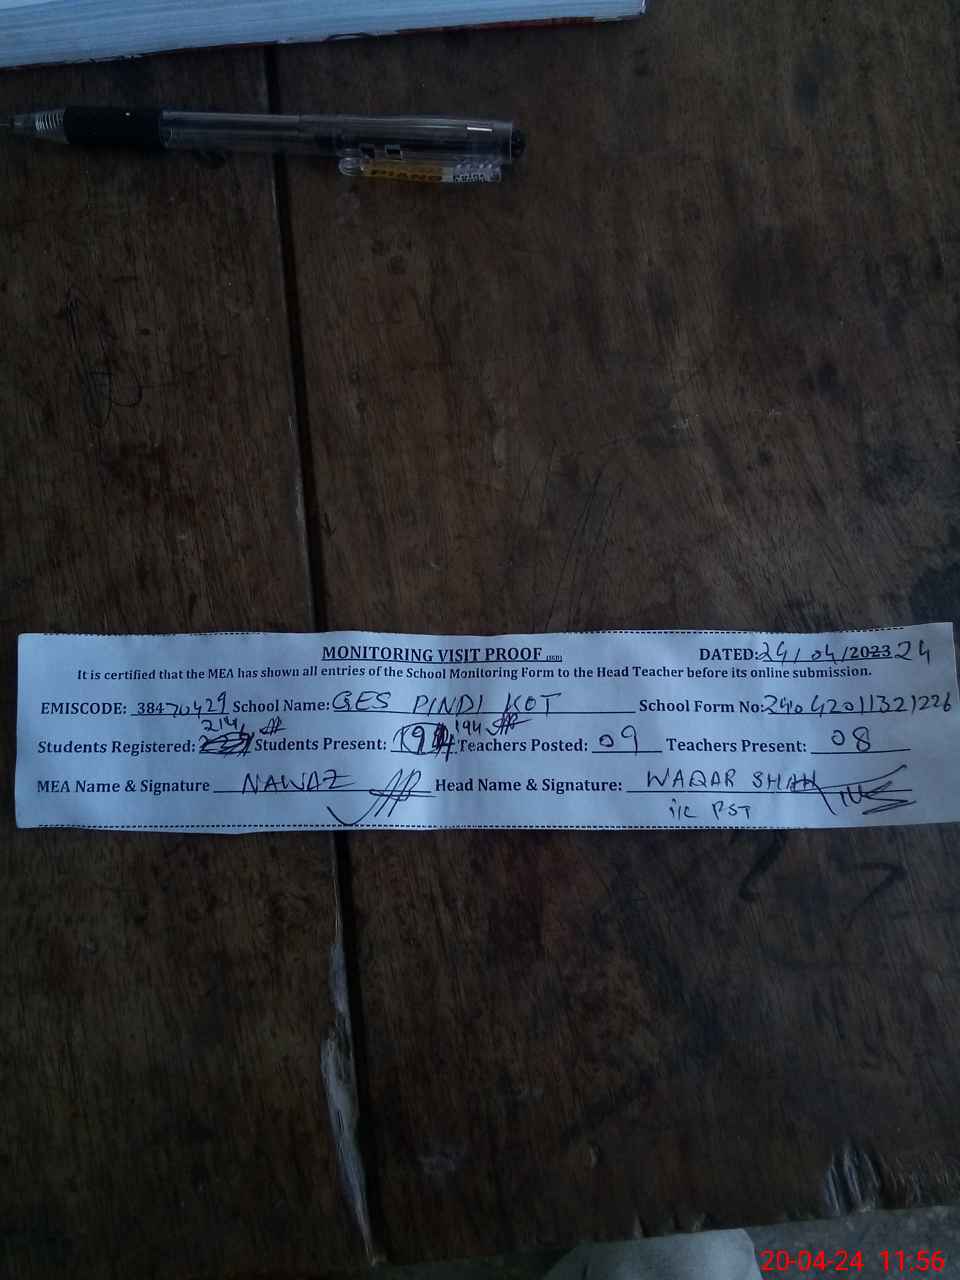 PIANO
MONITORING VISIT PROOF
DATED: 24/04/2023 24
It is certified that the MEA has shown all entries of the School Monitoring Form to the Head Teacher before its online submission.
EMISCODE: 38470429 School Name: GES PINDI KOT School Form No:
214 194
Students Registered: Students Present: Teachers Posted: 09 Teachers Present: 08
MEA Name & Signature NAWAZ Head Name & Signature: WAQAR SHAH
i/c PST
20-04-24 11:56